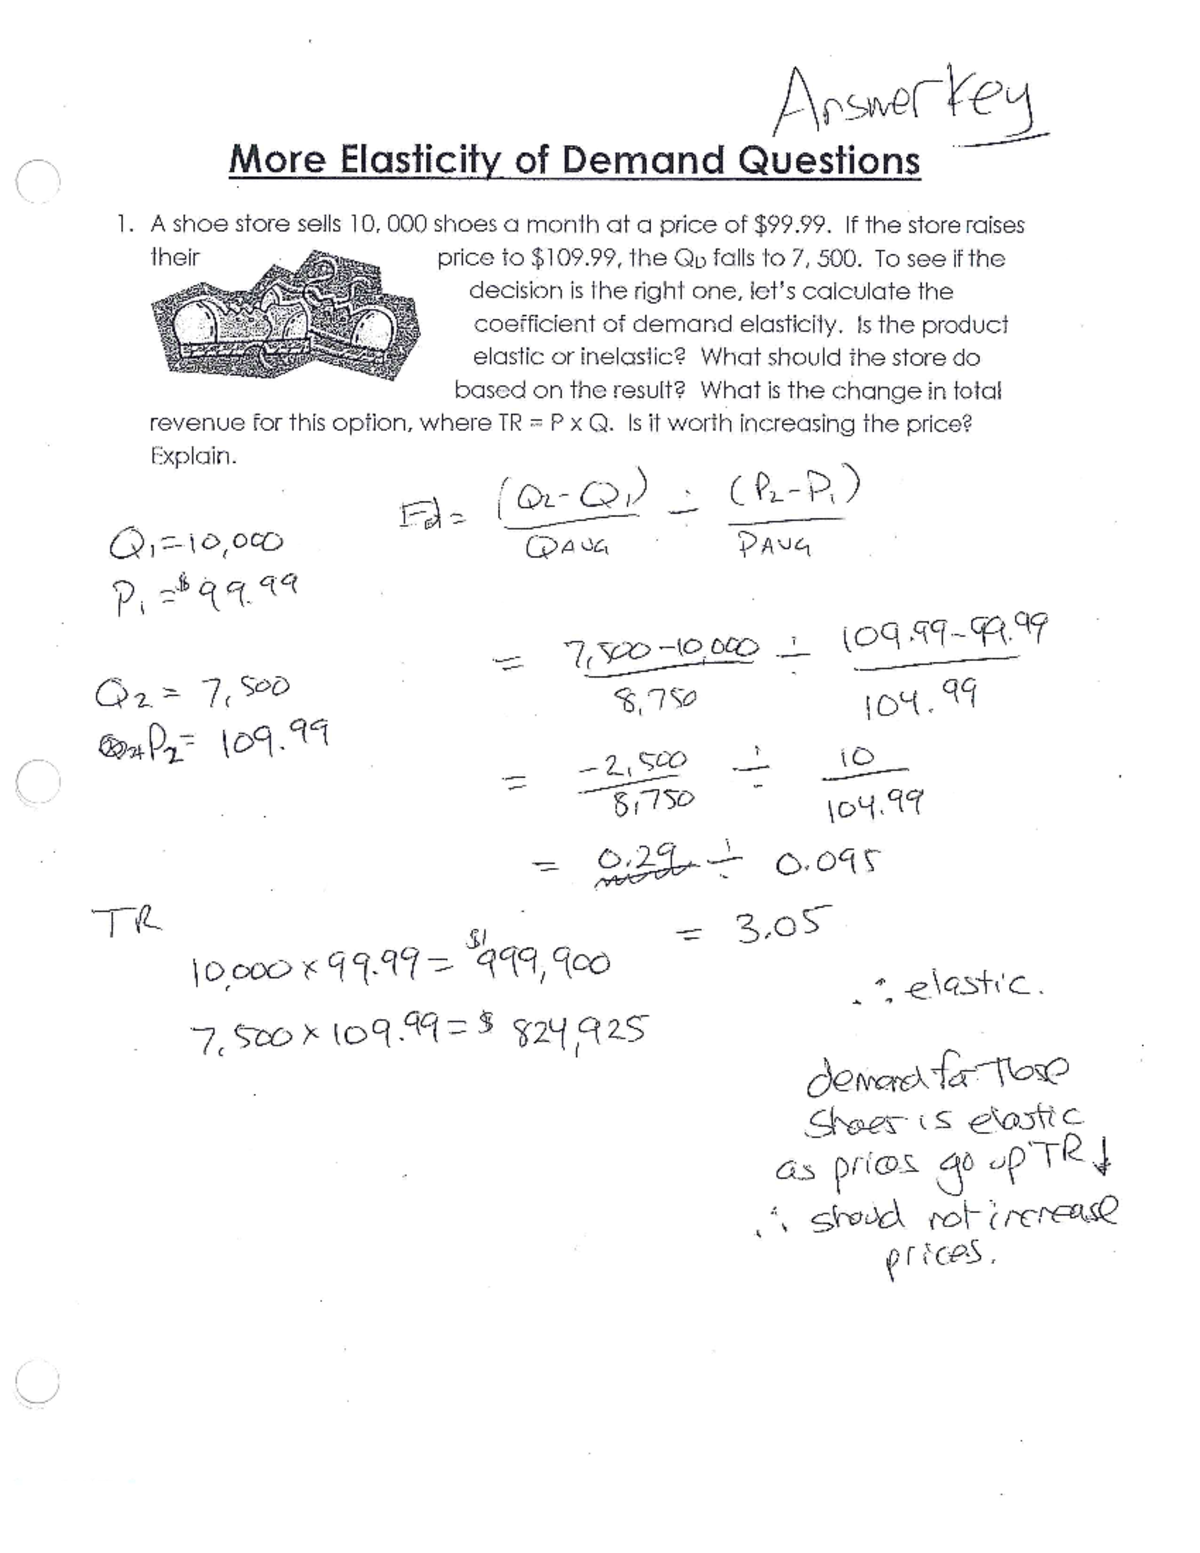 Answer Key
More Elasticity of Demand Questions
1. A shoe store sells 10, 000 shoes a month at a price of $99.99. If the store raises
their price to $109.99, the QD falls to 7, 500. To see if the
decision is the right one, let's calculate the
coefficient of demand elasticity. Is the product
elastic or inelastic? What should the store do
based on the result? What is the change in total
revenue for this option, where TR = P x Q. Is it worth increasing the price?
Explain.
Ed = (Q2-Q1) ÷ (P2-P1)
QAVG PAVG
Q1=10,000
P1=$99.99
= 7,500-10,000 ÷ 109.99-99.99
8,750 104.99
Q2 = 7,500
P2= 109.99
= -2,500 ÷ 10
8,750 104.99
= 0.29 ÷ 0.095
= 3.05
TR
10,000 x 99.99 = $999,900
7,500 x 109.99 = $ 824,925
∴ elastic.
demand for those
shoes is elastic
as prices go up TR↓
∴ should not increase
prices.